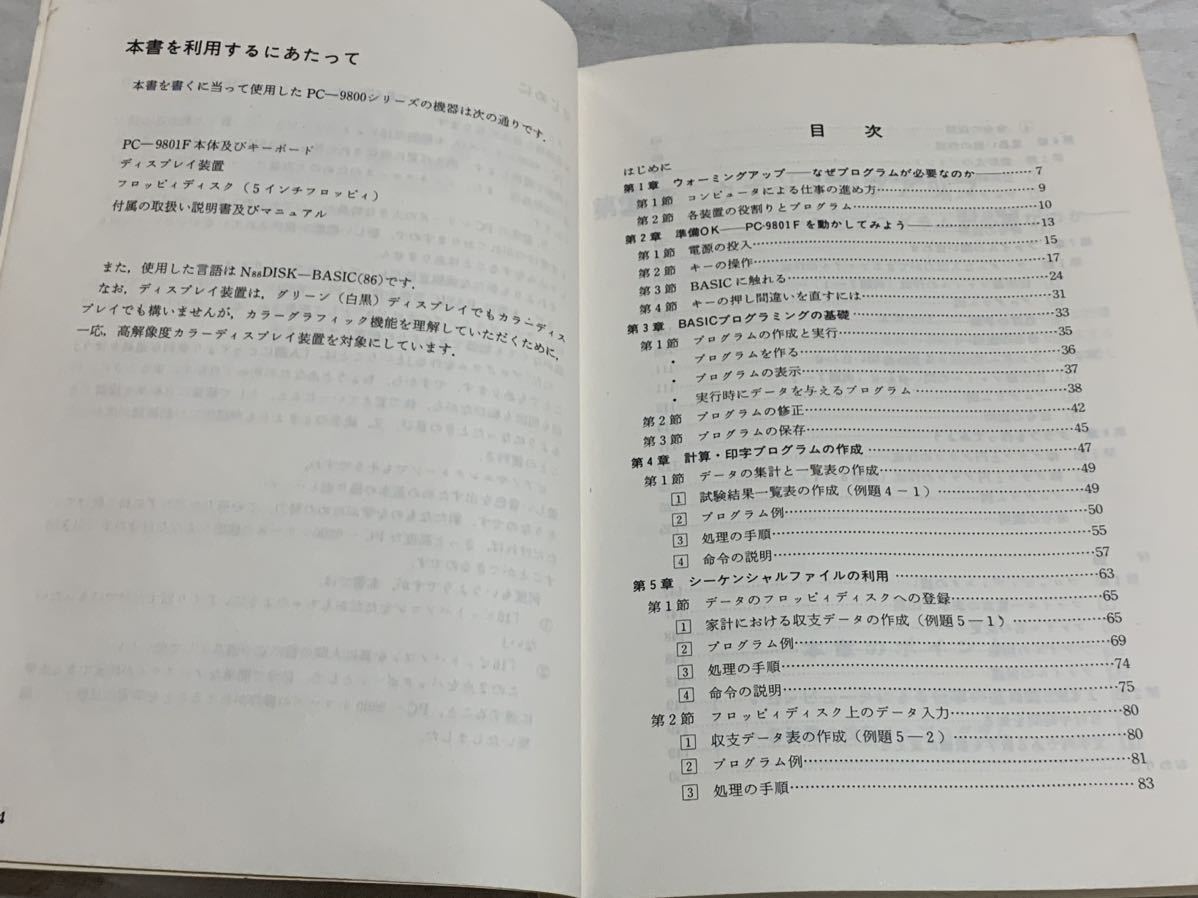 本書を利用するにあたって
本書を書くに当って使用した PC―9800シリーズの機器は次の通りです.
PC―9801F 本体及びキーボード
ディスプレイ装置
フロッピィディスク（5インチフロッピィ）
付属の取扱い説明書及びマニュアル
また，使用した言語は N₈₈DISK―BASIC(86)です.
なお，ディスプレイ装置は，グリーン（白黒）ディスプレイでもカラーディス
プレイでも構いませんが，カラーグラフィック機能を理解していただくために，
一応，高解像度カラーディスプレイ装置を対象にしています.
4
目 次
はじめに
第1章 ウォーミングアップ――なぜプログラムが必要なのか――………7
第1節 コンピュータによる仕事の進め方………9
第2節 各装置の役割りとプログラム………10
第2章 準備OK――PC-9801Fを動かしてみよう――………13
第1節 電源の投入………15
第2節 キーの操作………17
第3節 BASICに触れる………24
第4節 キーの押し間違いを直すには………31
第3章 BASICプログラミングの基礎………33
第1節 プログラムの作成と実行………35
・ プログラムを作る………36
・ プログラムの表示………37
・ 実行時にデータを与えるプログラム………38
第2節 プログラムの修正………42
第3節 プログラムの保存………45
第4章 計算・印字プログラムの作成………47
第1節 データの集計と一覧表の作成………49
1 試験結果一覧表の作成（例題4－1）………49
2 プログラム例………50
3 処理の手順………55
4 命令の説明………57
第5章 シーケンシャルファイルの利用………63
第1節 データのフロッピィディスクへの登録………65
1 家計における収支データの作成（例題5－1）………65
2 プログラム例………69
3 処理の手順………74
4 命令の説明………75
第2節 フロッピィディスク上のデータ入力………80
1 収支データ表の作成（例題5－2）………80
2 プログラム例………81
3 処理の手順………83